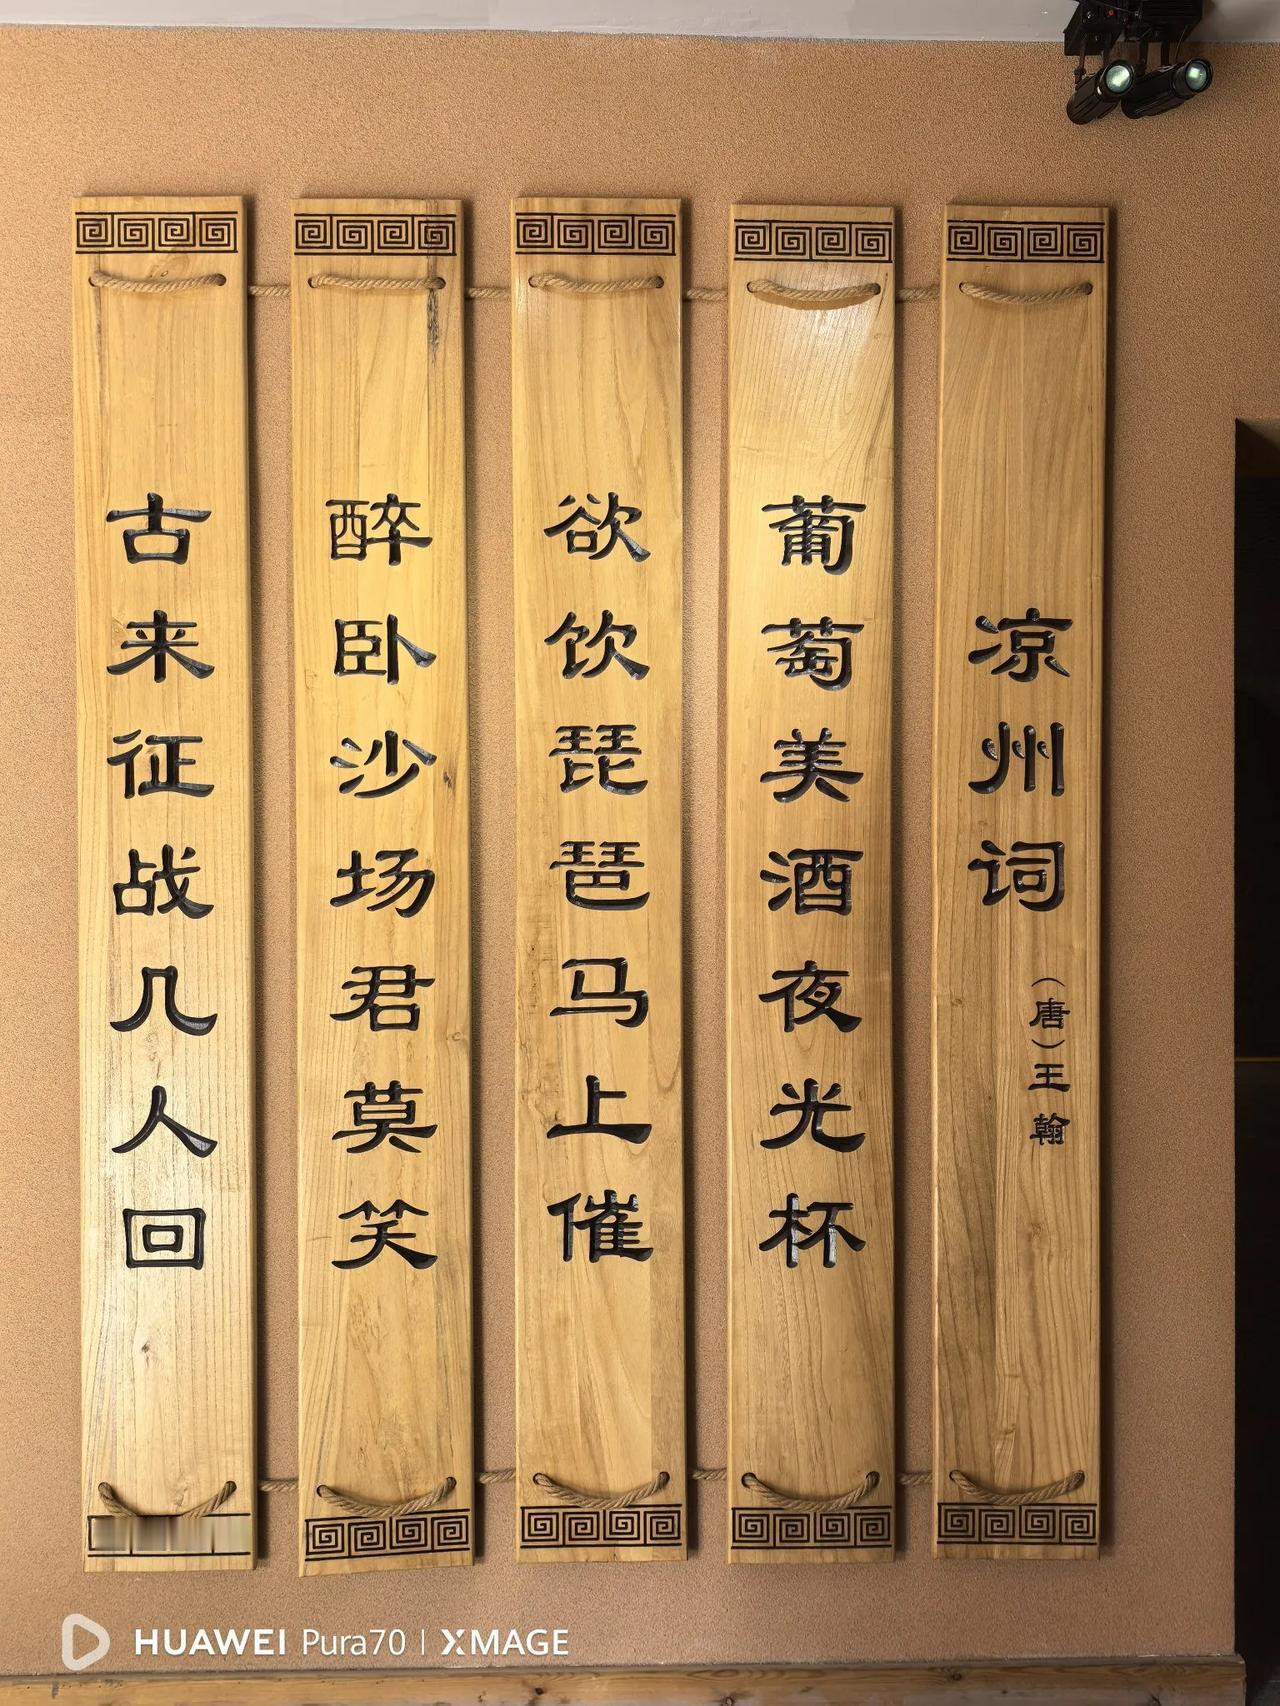 凉州词
（唐）王翰
葡萄美酒夜光杯
欲饮琵琶马上催
醉卧沙场君莫笑
古来征战几人回
HUAWEI Pura70 | XMAGE